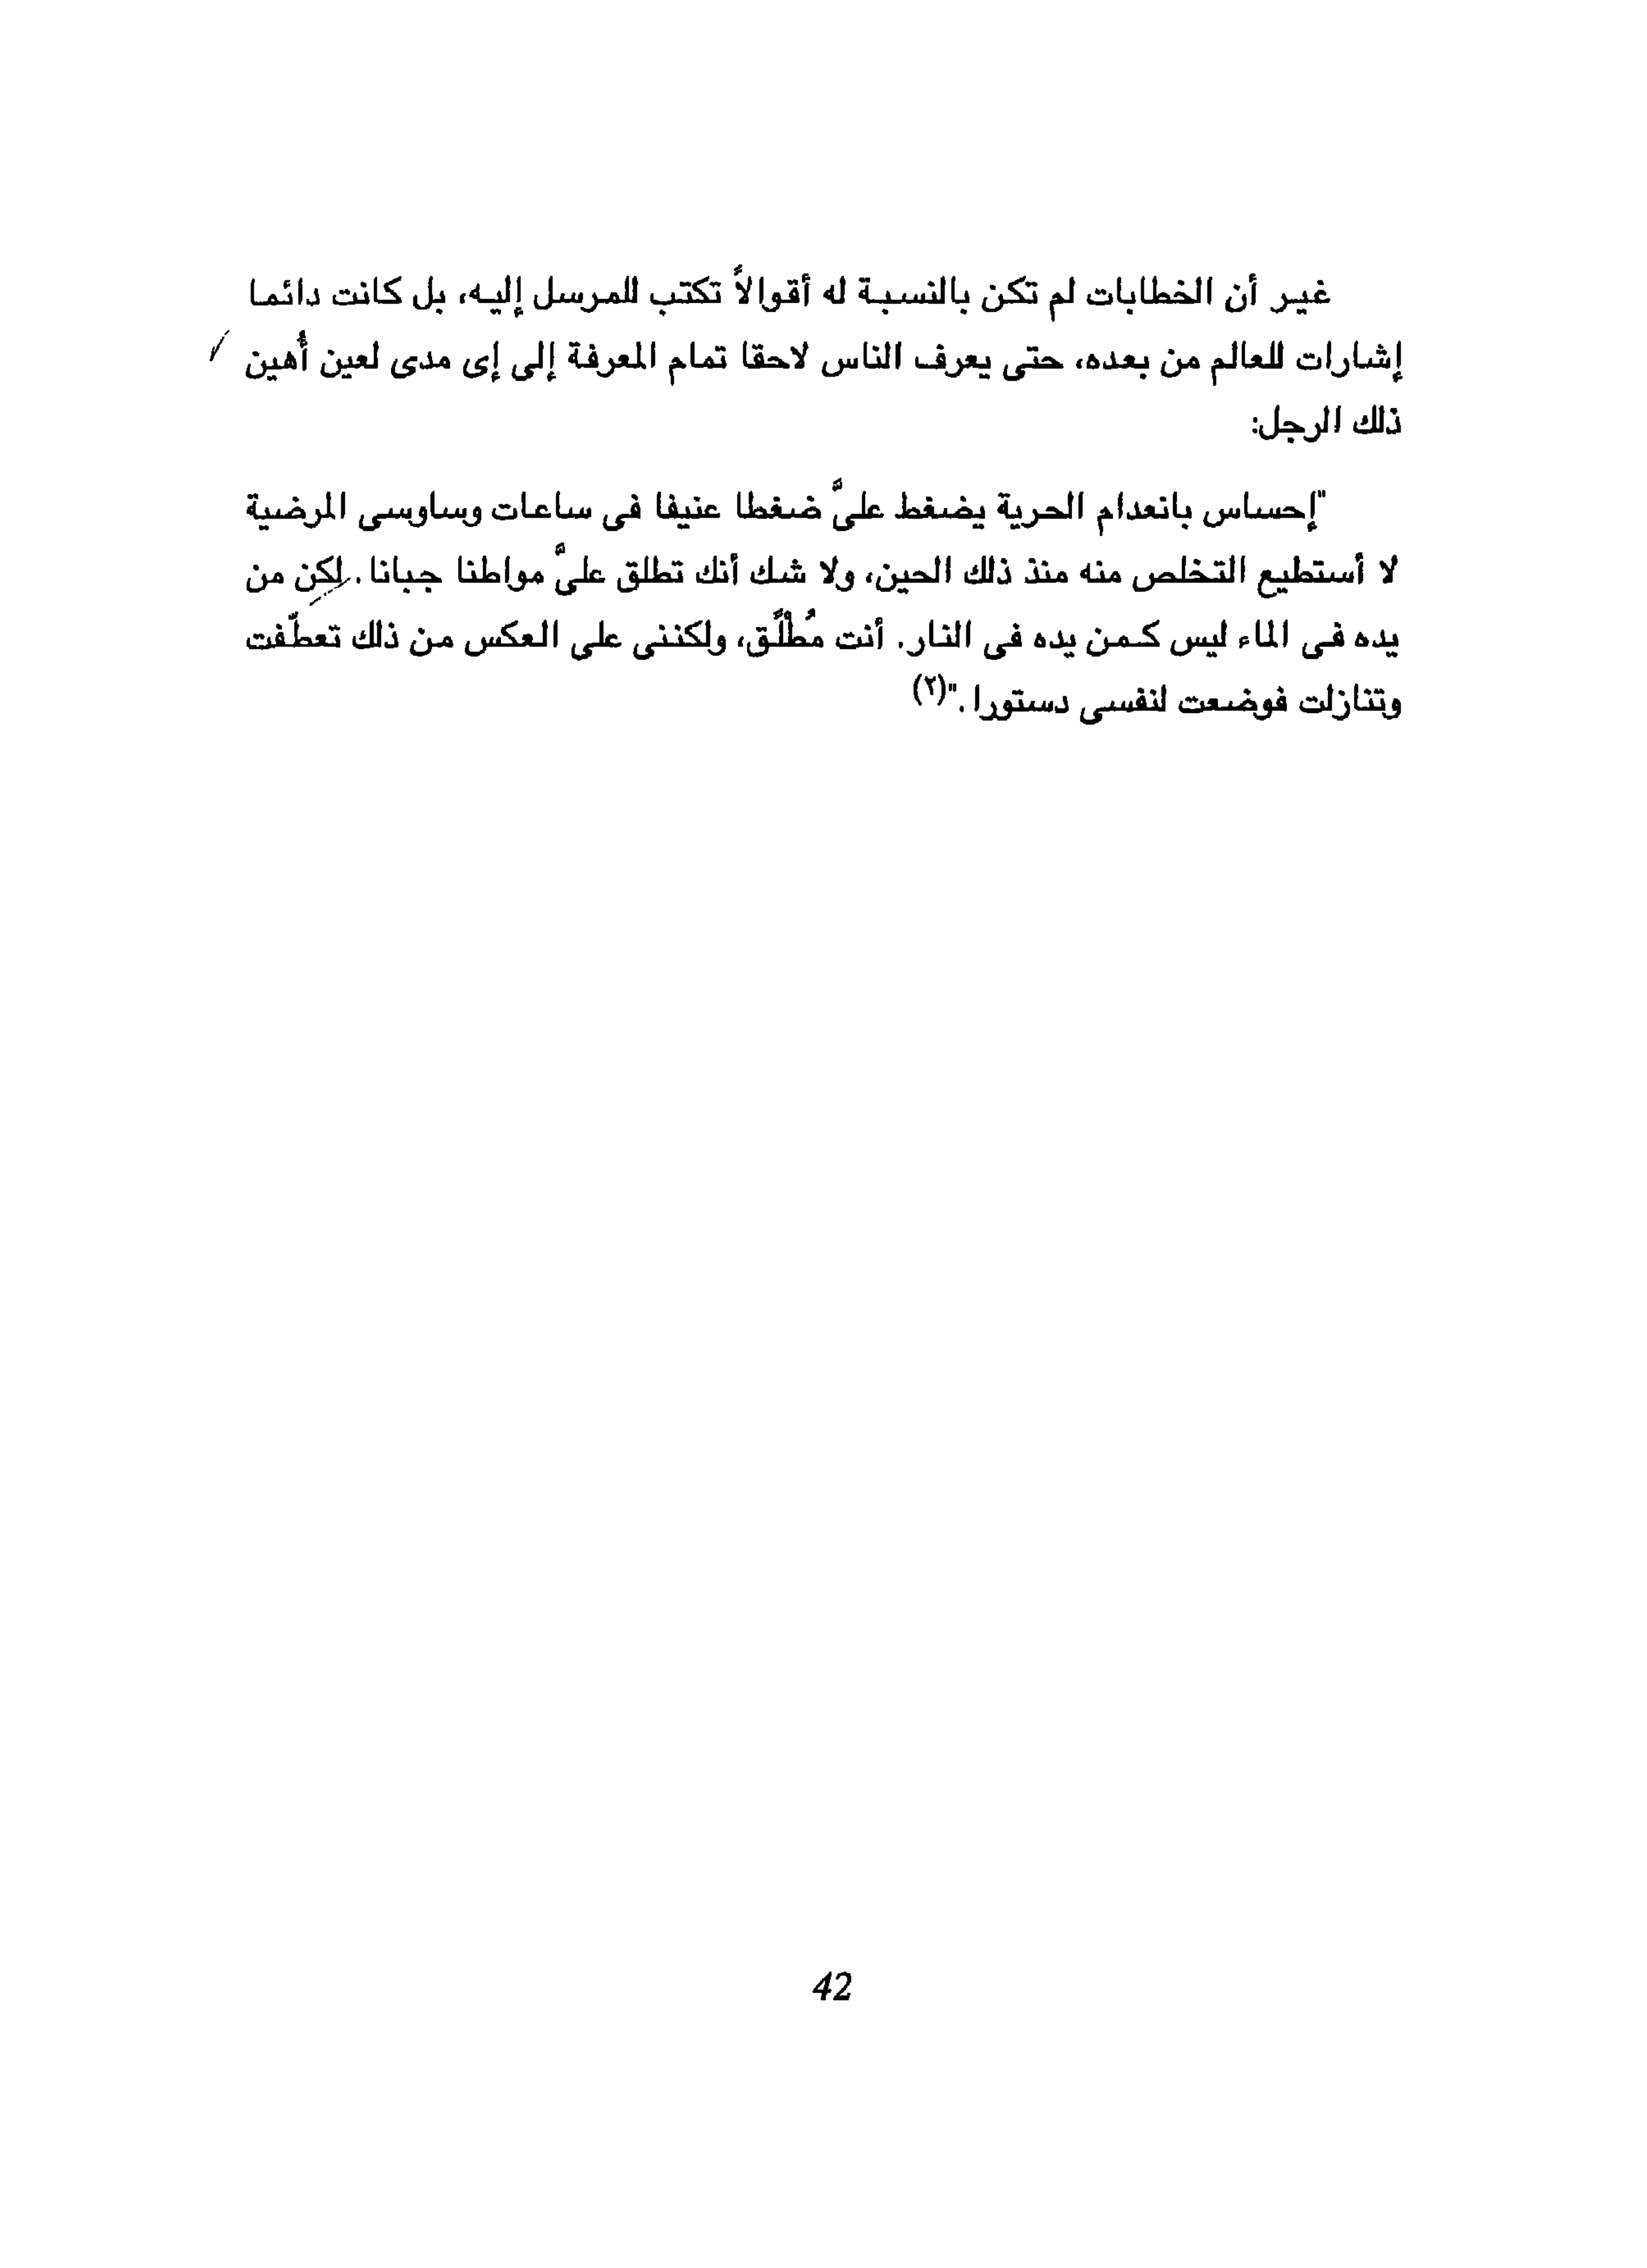 غير أن الخطابات لم تكن بالنسبة له أقوالاً تكتب للمرسل إليه، بل كانت دائما
إشارات للعالم من بعده، حتى يعرف الناس لاحقا تمام المعرفة إلى إى مدى لعين أُهين
ذلك الرجل:
"إحساس بانعدام الحرية يضغط علىَّ ضغطا عنيفا فى ساعات وساوسى المرضية
لا أستطيع التخلص منه منذ ذلك الحين، ولا شك أنك تطلق علىَّ مواطنا جبانا. لكن من
يده فى الماء ليس كمن يده فى النار. أنت مُطْلًَق، ولكننى على العكس من ذلك تعطّفت
وتنازلت فوضعت لنفسى دستورا."(٢)
42